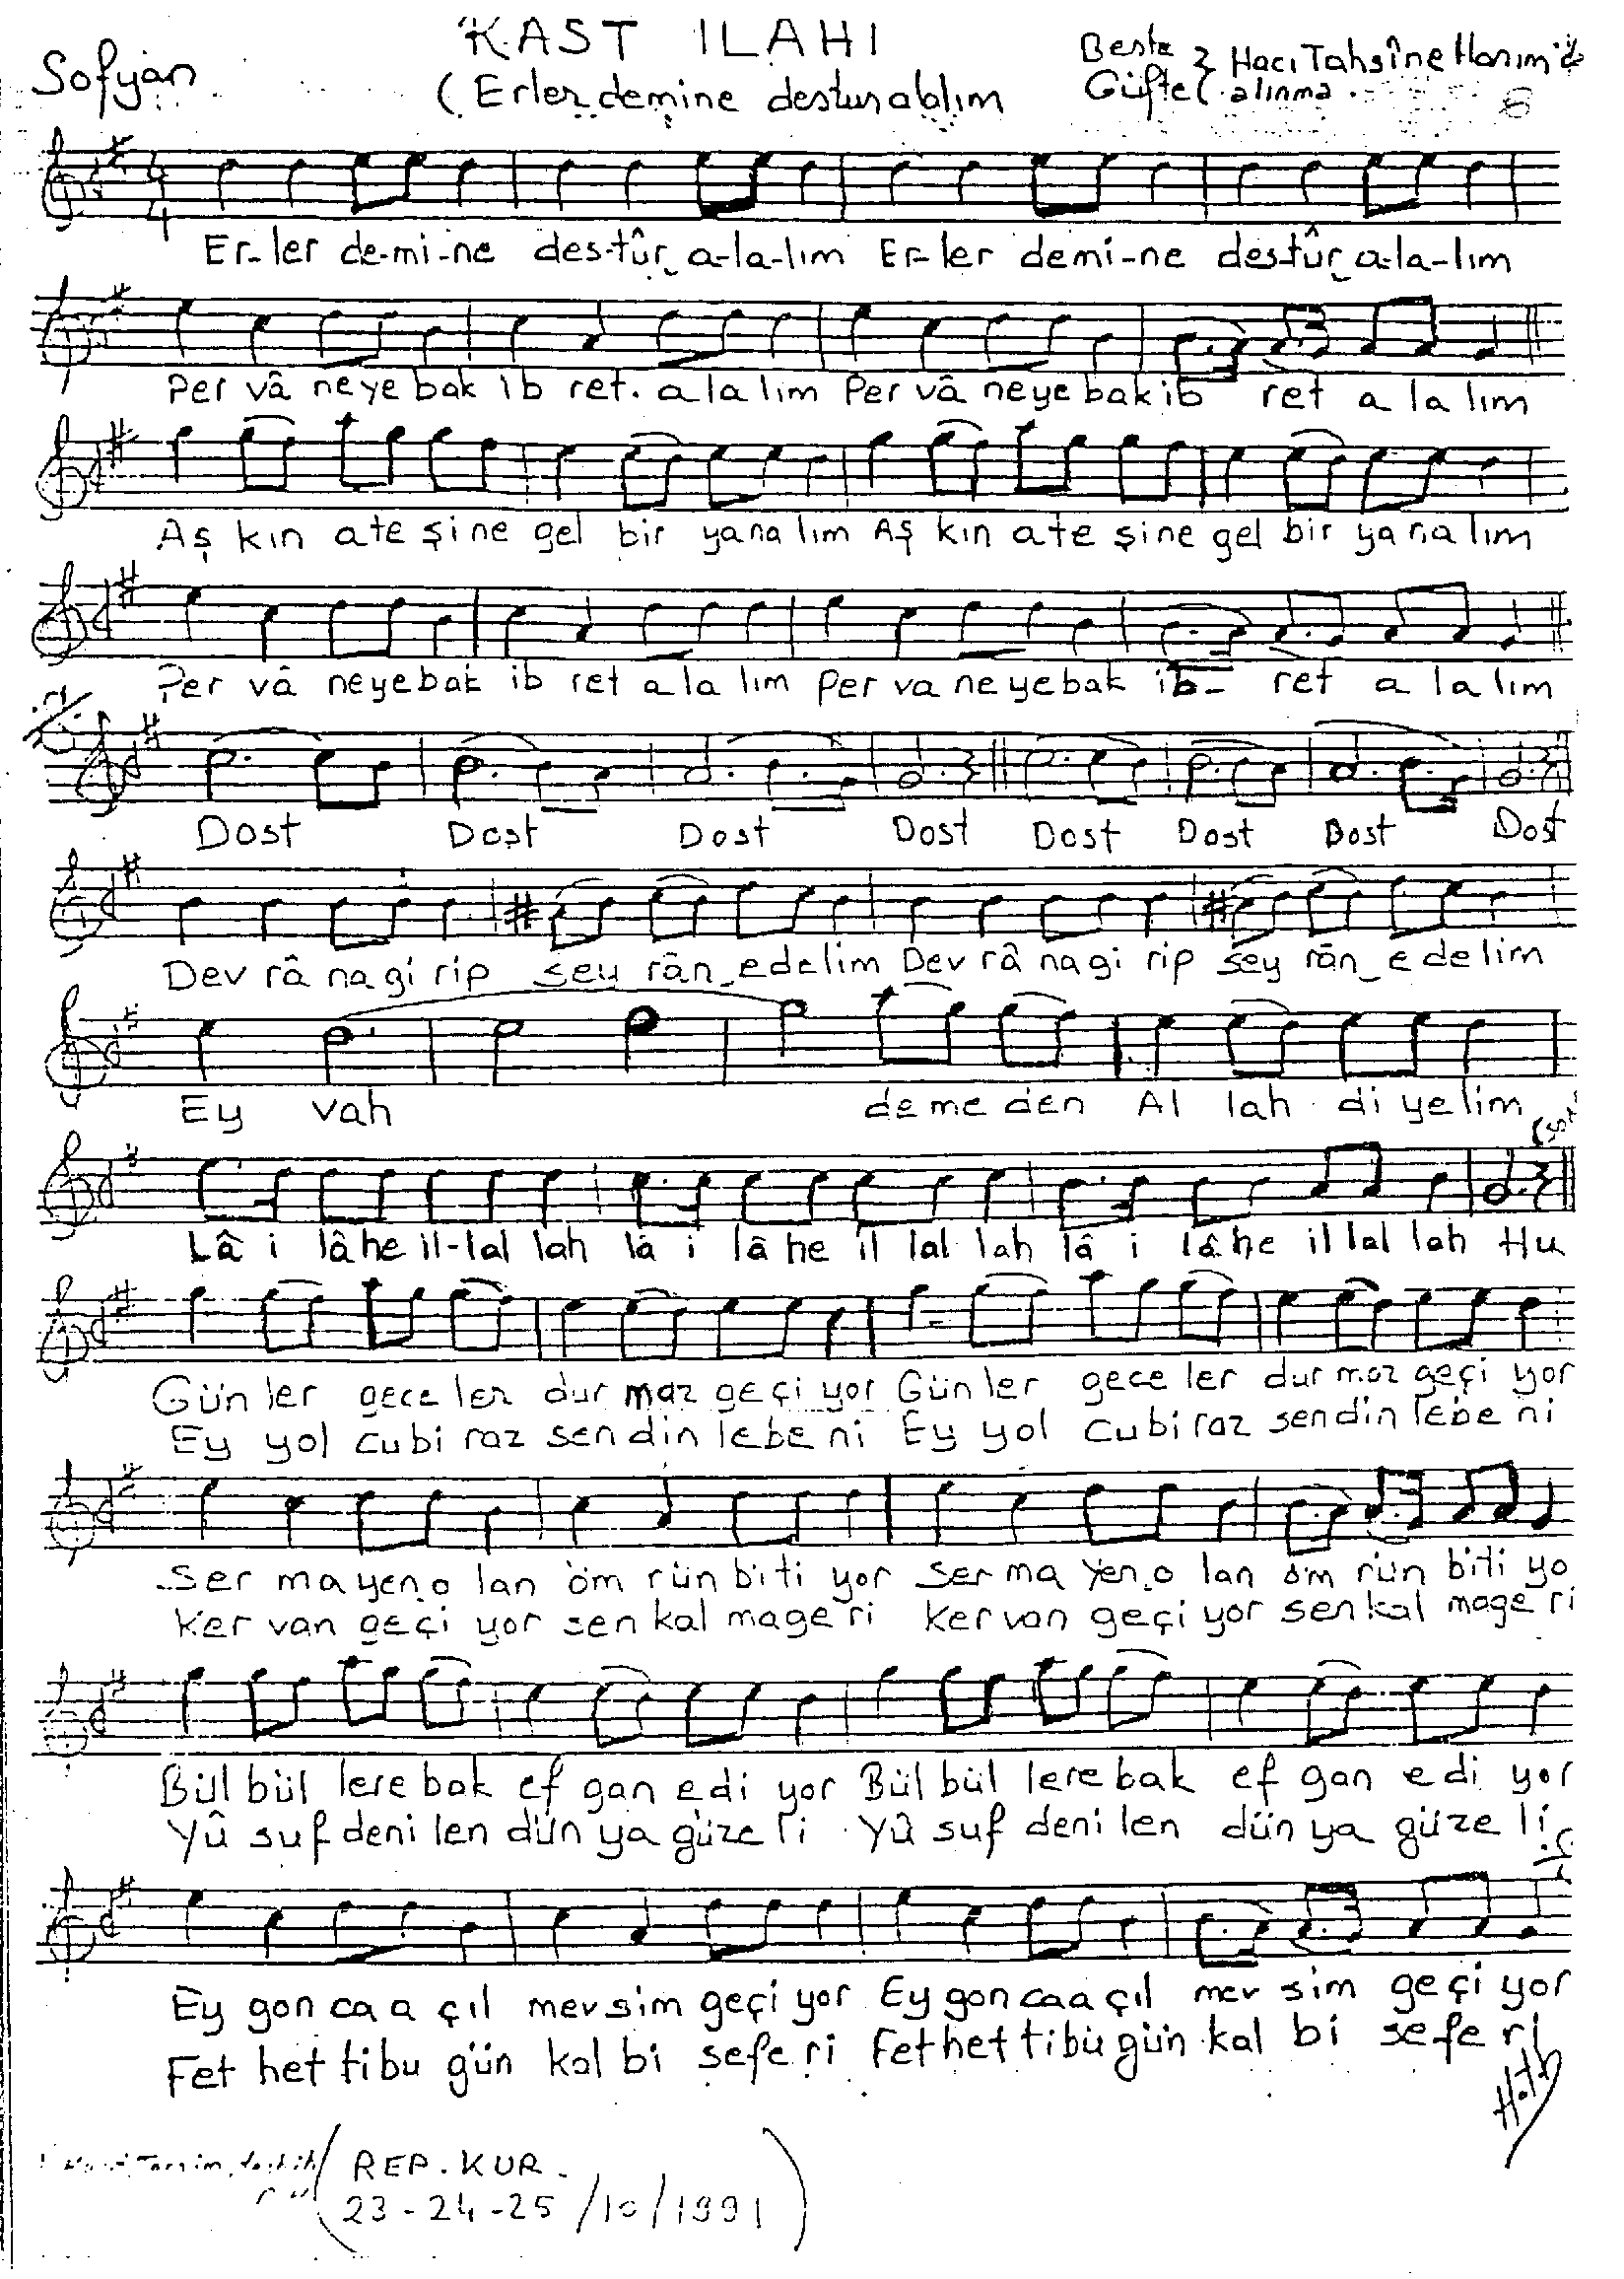 KAST ILAHI
Sofyan
(Erler demine destur alalım
Beste
Güfte } Hacı Tahsîne Hanım'
alınma.
Er-ler de-mi-ne des-tûr a-la-lım Er-ler demi-ne des-tûr a-la-lım
Per vâ neye bak ib ret. a la lım Per vâ neye bak ib ret a la lım
Aş kın ate şi ne gel bir yana lım Aş kın a te şine gel bir ya na lım
Per vâ neye bak ib ret a la lım Per va ne ye bak ib- ret a la lım
Dost Dost Dost Dost Dost Dost Dost Dost
Dev râ na gi rip sey rân edelim Dev râ na gi rip sey rân e de lim
Ey vah deme den Al lah di ye lim
Lâ i lâ he il-lal lah lâ i lâ he il lal lah lâ i lâ he il lal lah Hu
Gün ler gece ler dur maz geçi yor Gün ler gece ler dur maz geçi yor
Ey yol cu bi raz sen din le be ni Ey yol cu bi raz sen din le be ni
Ser ma yen o lan öm rün bi ti yor Ser ma yen o lan öm rün biti yo
Ker van geçi yor sen kal mage ri Ker van geçi yor sen kal mage ri
Bül bül lere bak ef gan e di yor Bül bül lere bak ef gan e di yor
Yû suf deni len dün ya güze li Yû suf deni len dün ya güze li
Ey gon ca a çıl mev sim geçi yor Ey gon ca a çıl mev sim geçi yor
Fet het ti bu gün kal bi sefe ri Fet het ti bu gün kal bi sefe ri
(REP. KUR.
23-24-25/10/1991)